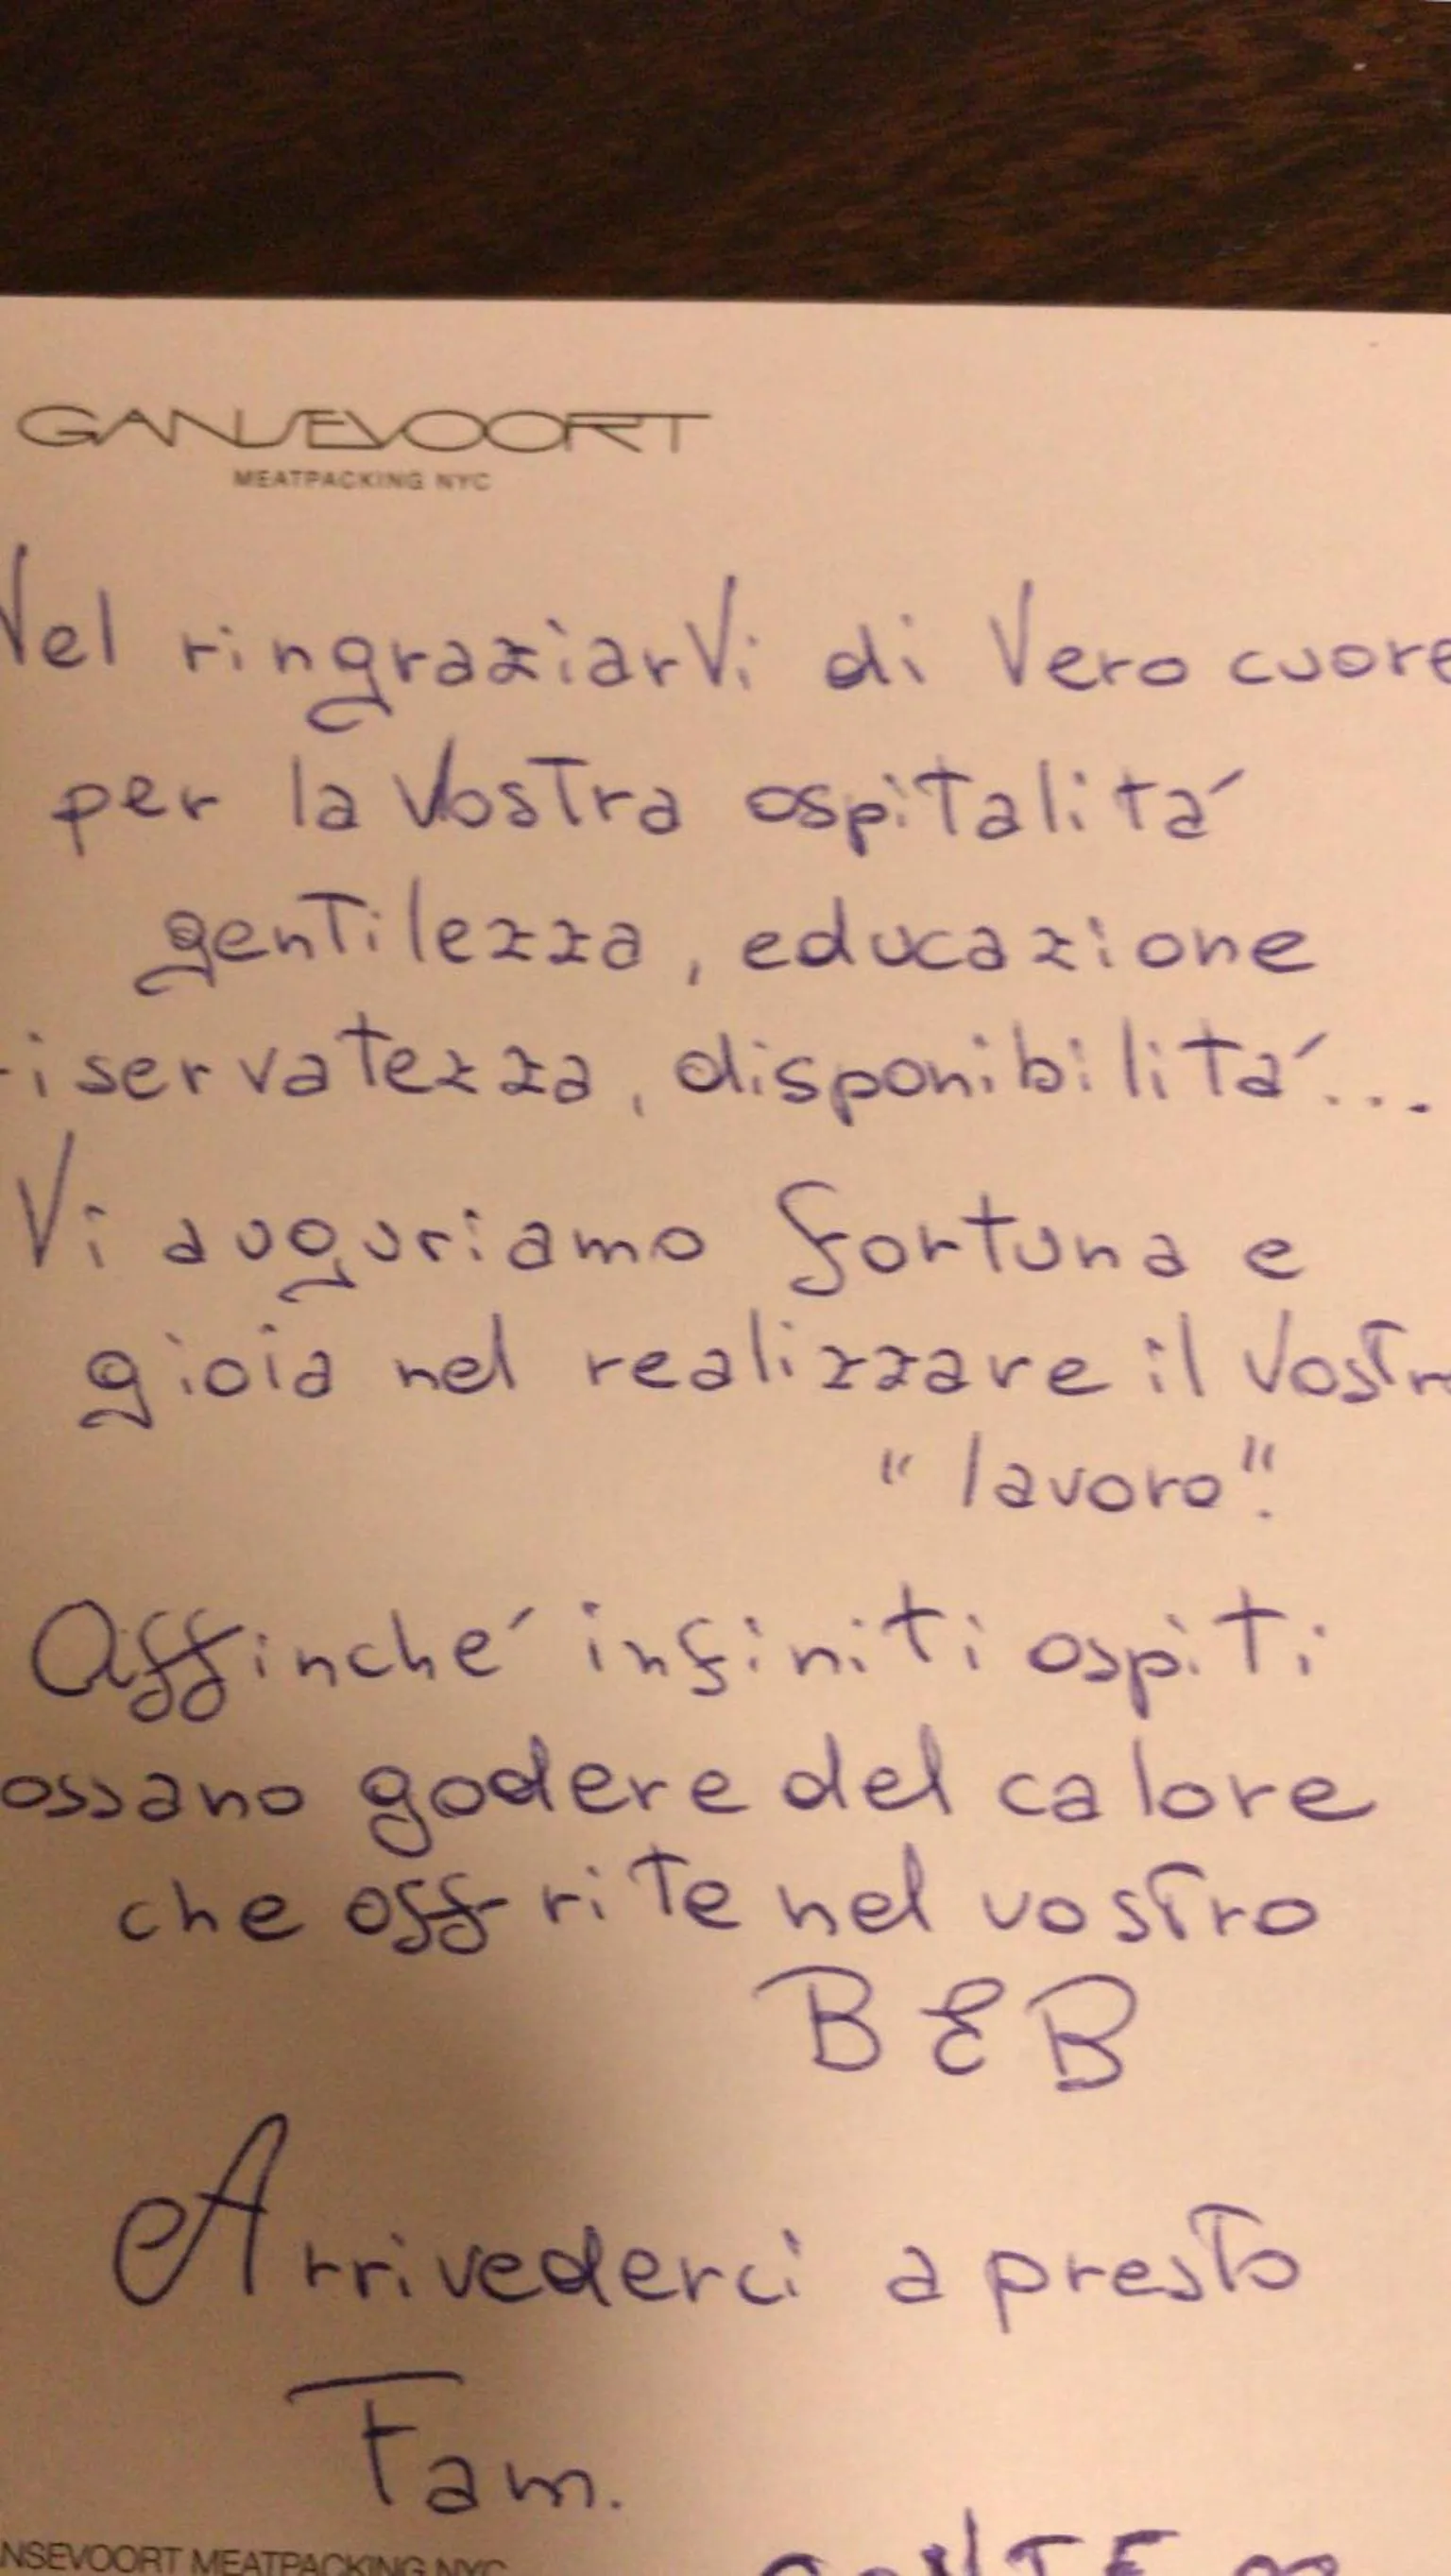 GANSEVOORT
MEATPACKING NYC
Nel ringraziarVi di Vero cuore
per la Vostra ospitalitá
gentilezza, educazione
riservatezza, disponibilitá...
Vi auguriamo fortuna e
gioia nel realizzare il Vostr
"lavoro".
Affinché infiniti ospiti
ossano godere del calore
che offrite nel vostro
B & B
Arrivederci a presto
Fam.
NSEVOORT MEATPACKING NYC